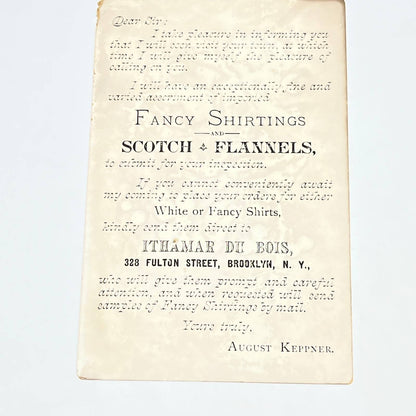 Dear Sir:
I take pleasure in informing you
that I will soon visit your town, at which
time I will give myself the pleasure of
calling on you.
I will have an exceptionally fine and
varied assortment of imported
FANCY SHIRTINGS
AND
SCOTCH FLANNELS,
to submit for your inspection.
If you cannot conveniently await
my coming to place your orders for either
White or Fancy Shirts,
kindly send them direct to
ITHAMAR DU BOIS,
328 FULTON STREET, BROOKLYN, N. Y.,
who will give them prompt and careful
attention, and when requested will send
samples of Fancy Shirtings by mail.
Yours truly,
AUGUST KEPPNER.